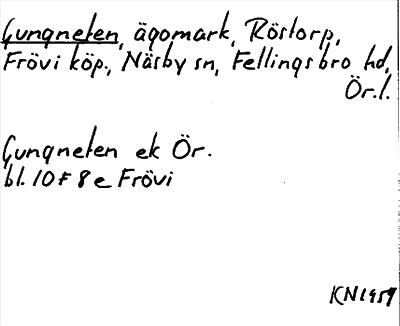 Gungneten, ägomark, Röstorp,
Frövi köp., Näsby sn, Fellingsbro hd,
Ör.l.
Gungneten ek Ör.
bl. 10F 8e Frövi
KN1959